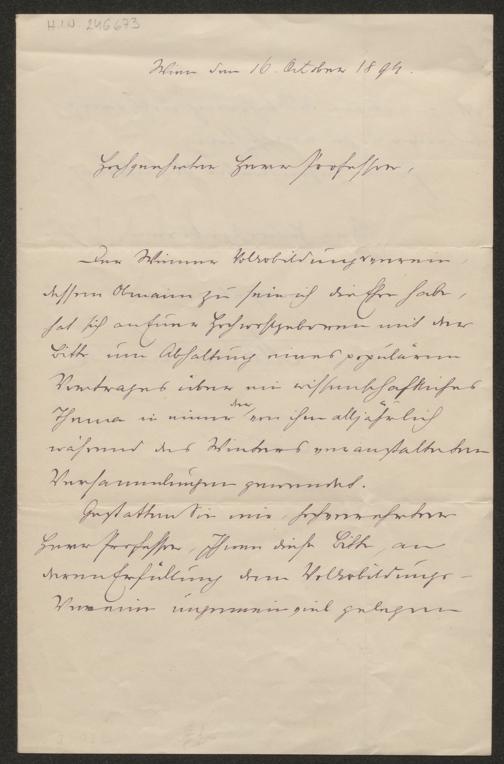 H.I.N. 246673
Wien den 16. October 1894.
Hochgeehrter Herr Professor,
Der Wiener Volksbildungsverein,
dessen Obmann zu sein ich die Ehre habe,
hat sich an Euer Hochwohlgeboren mit der
Bitte um Abhaltung eines populären
Vortrages über ein wissenschaftliches
Thema in einer der von ihm alljährlich
während des Winters veranstalteten
Versammlungen gewendet.
Gestatten Sie mir, hochverehrter
Herr Professor, Ihnen diese Bitte, an
deren Erfüllung dem Volksbildungs-
Vereine ungemein viel gelegen